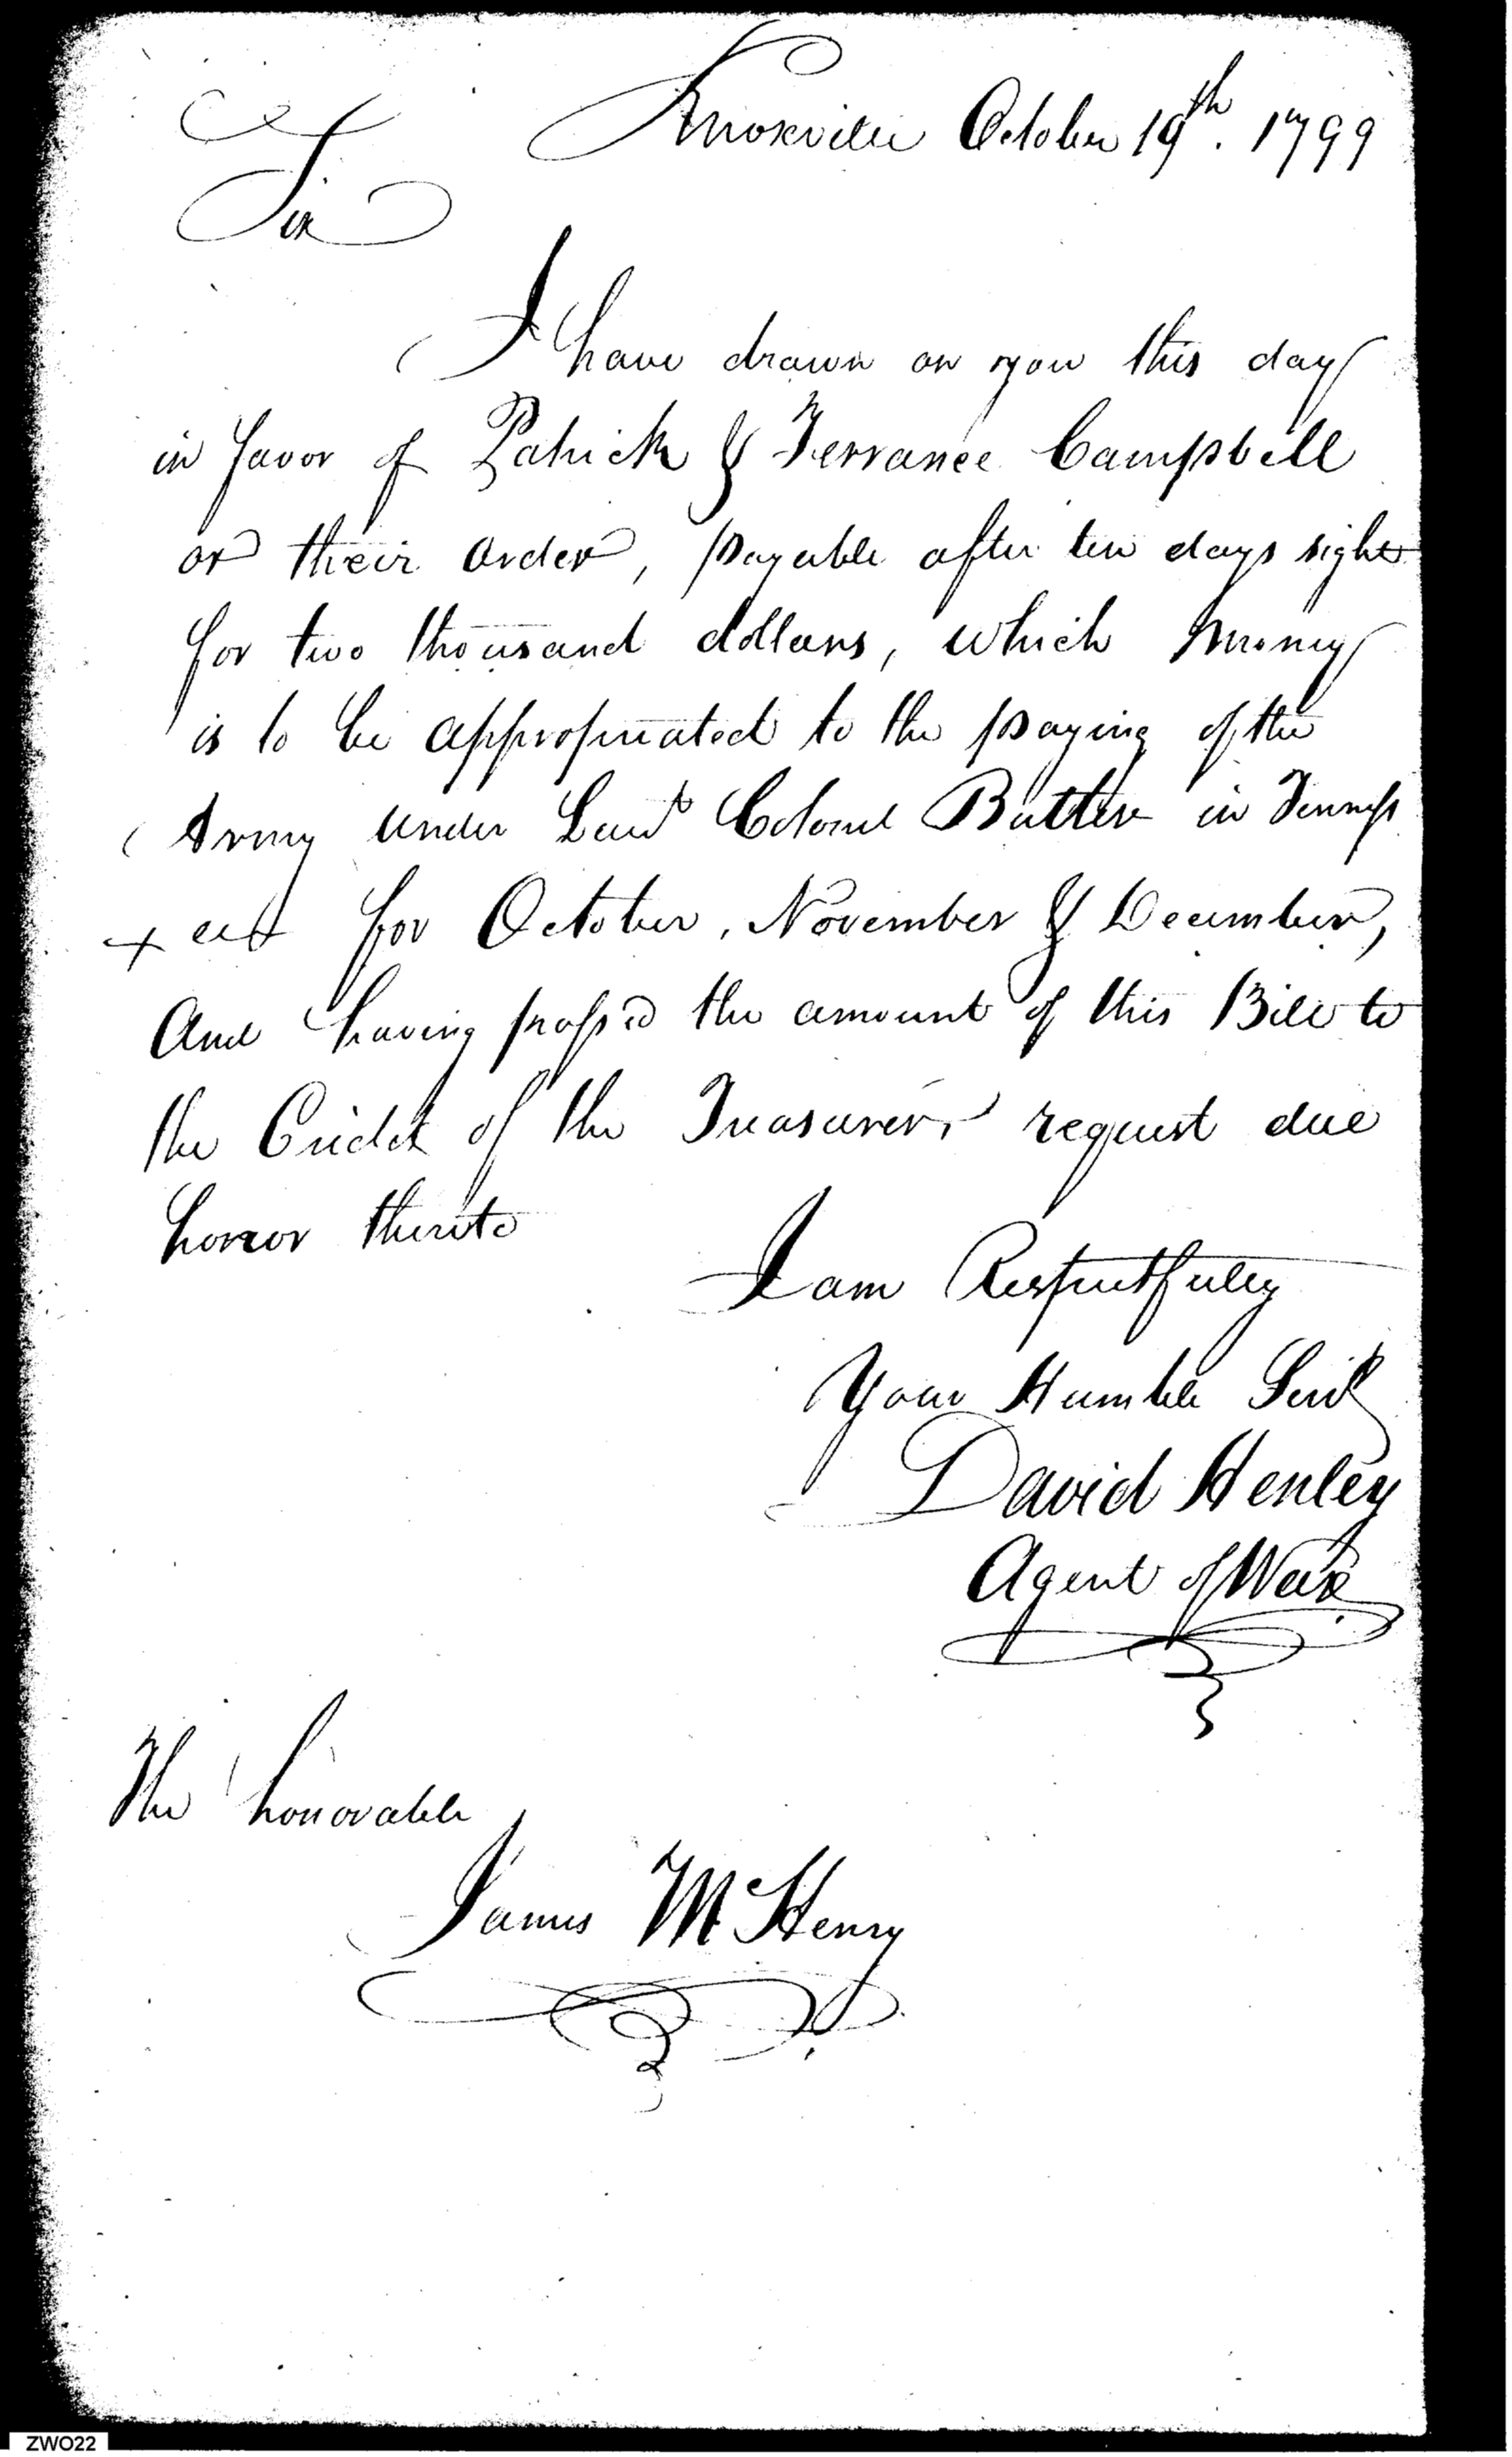 Knoxville October 19th. 1799
Sir
I have drawn on you this day
in favor of Patrick & Terrance Campbell
or their order, payable after ten days sight
for two thousand dollars, which money
is to be appropriated to the paying of the
Army under Leut Colonel Butler in Tenness
+ ee for October, November & December,
And having pass'd the amount of this Bill to
the Credit of the Treasurer, request due
honor thereto
I am Respectfully
Your Humble Servt
David Henley
Agent of War
The honorable
James McHenry
ZWO22